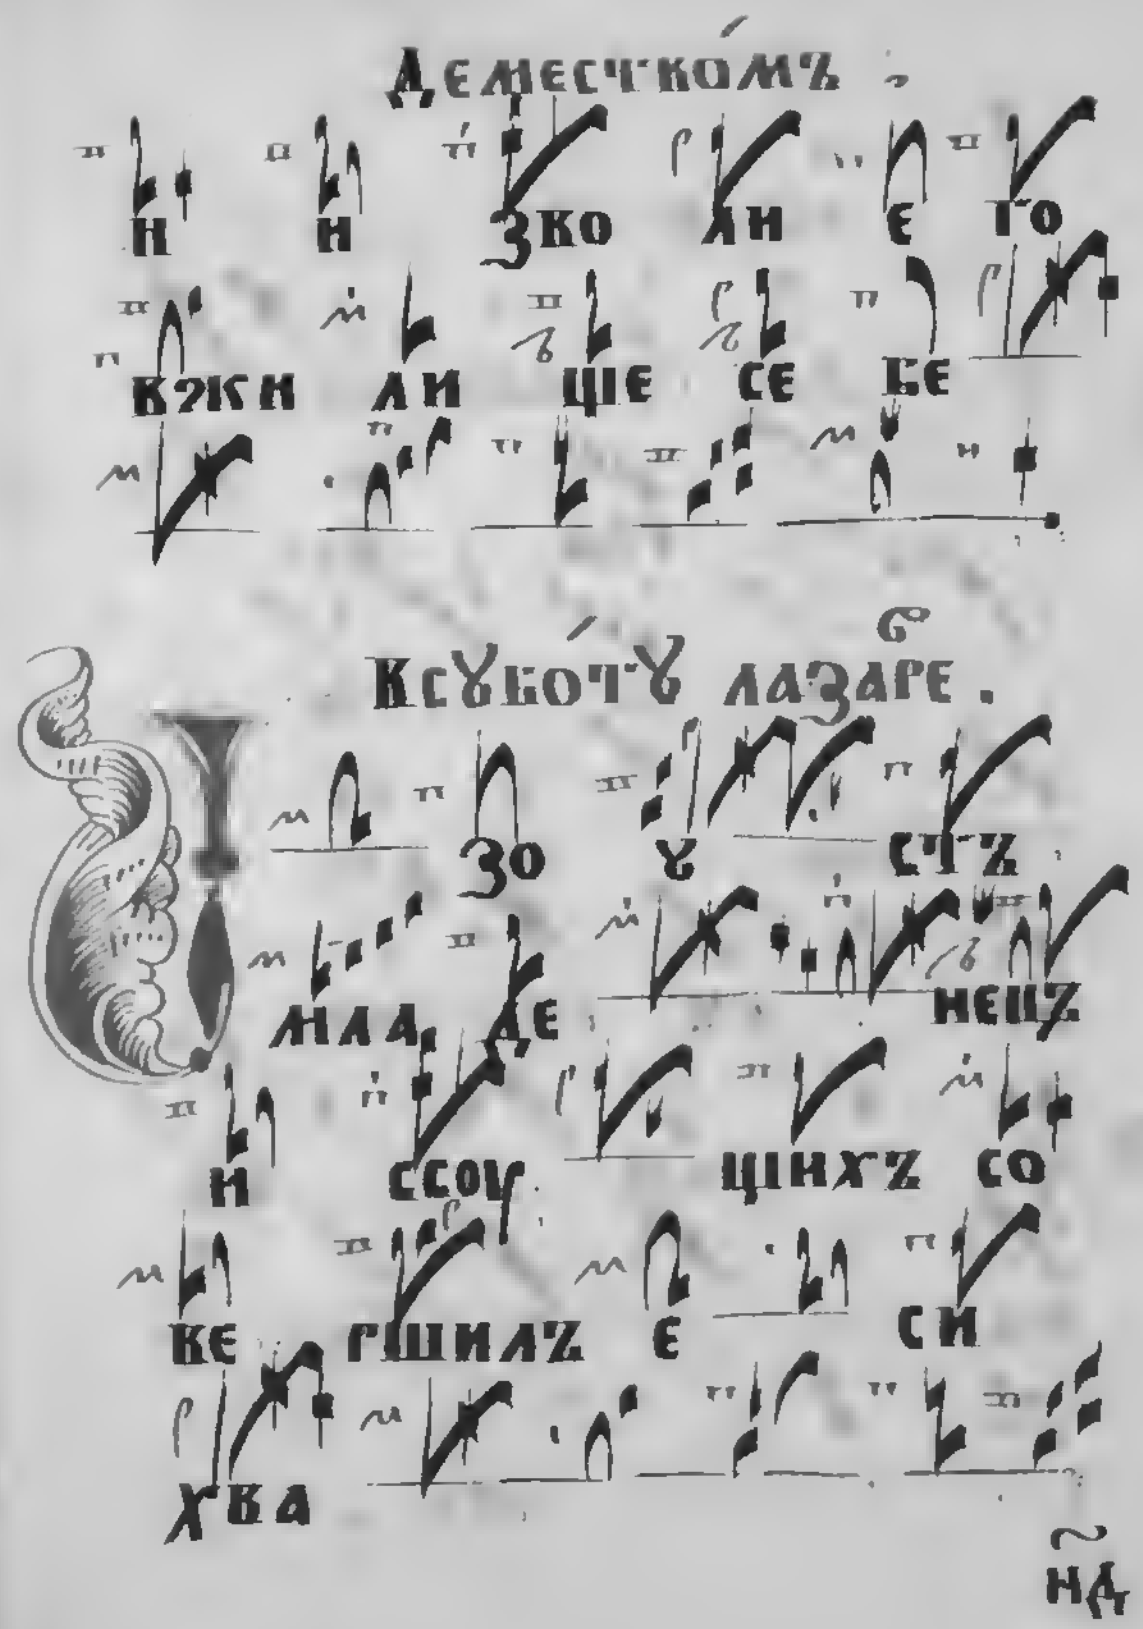 Демествомъ
и и зволи его
вѹжи лише себе
Всꙋбо́тꙋ лазаре .
И зо ꙋ стъ
мла де нецъ
и ссоущихъ со
ве ршилъ е си
хва
нд